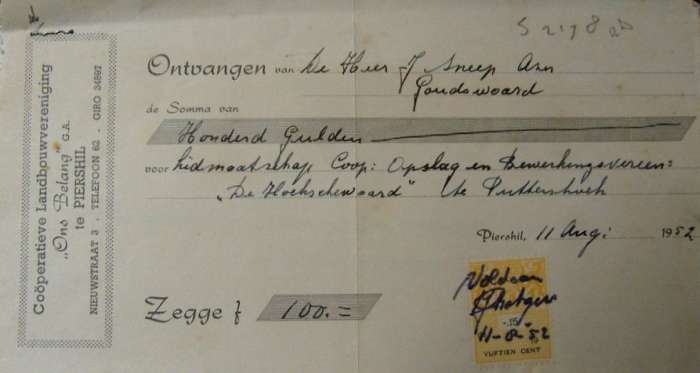 Coöperatieve Landbouwvereeniging
„Ons Belang" G.A.
te PIERSHIL
NIEUWSTRAAT 3 . TELEFOON 62 . GIRO 34897
Ontvangen van de Heer J Sneep Azn
Goudswaard
de Somma van
Honderd Gulden
voor Lidmaatschap Coop: Opslag en Bewerkingsvereen:
„De Hoekschewaard" te Puttershoek
Piershil, 11 Aug: 1952
Zegge ƒ 100.=
Voldaan
-.15
11-8-52
VIJFTIEN CENT